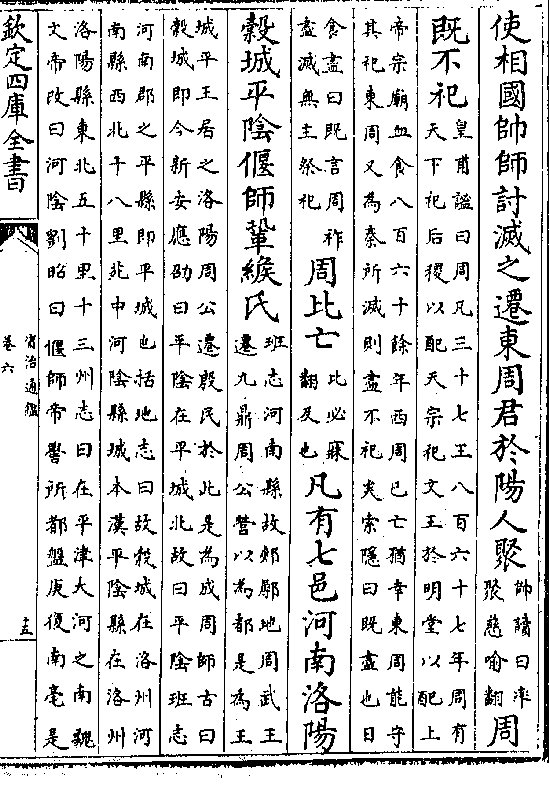 使相國帥師討滅之遷東周君於陽人聚帥讀曰率聚慈喻翻周
既不祀皇甫謐曰周凡三十七王八百六十七年周有天下祀后稷以配天宗祀文王於明堂以配上
帝宗廟血食八百六十餘年西周已亡猶幸東周能守其祀東周又為秦所滅則盡不祀矣索隱曰既盡也日
食盡曰既言周祚盡滅無主祭祀周比亡比必寐翻及也凡有七邑河南洛陽
穀城平陰偃師鞏緱氏班志河南縣故郟鄏地周武王遷九鼎周公營以為都是為王
城平王居之洛陽周公遷殷民於此是為成周師古曰穀城即今新安應劭曰平陰在平城北故曰平陰班志
河南郡之平縣即平城也括地志曰故穀城在洛州河南縣西北十八里苑中河陰縣城本漢平陰縣在洛州
洛陽縣東北五十里十三州志曰在平津大河之南魏文帝改曰河陰劉昭曰偃師帝嚳所都盤庚復南亳是
欽定四庫全書
資治通鑑
卷六
十五